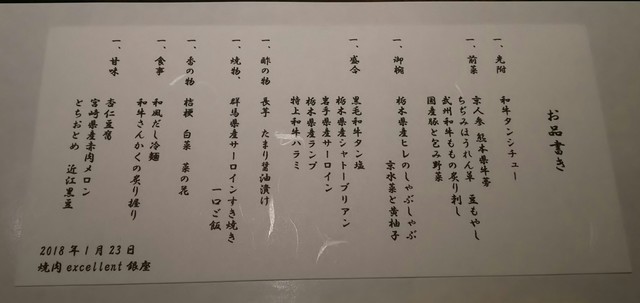 お品書き
一、先附
和牛タンシチュー
一、前菜
京人参 熊本県牛蒡
ちぢみほうれん草 豆もやし
武州和牛ももの炙り刺し
国産豚と包み野菜
一、御椀
栃木県産ヒレのしゃぶしゃぶ
京水菜と黄柚子
一、盛合
黒毛和牛タン塩
栃木県産シャトーブリアン
岩手県産サーロイン
栃木県産ランプ
特上和牛ハラミ
一、酢の物
長芋 たまり醤油漬け
一、焼物、
群馬県産サーロインすき焼き
一口ご飯
一、香の物
桔梗 白菜 菜の花
一、食事
和風だし冷麺
和牛さんかくの炙り握り
一、甘味
杏仁豆腐
宮崎県産赤肉メロン
とちおとめ 近江黒豆
2018年1月23日
焼肉excellent銀座